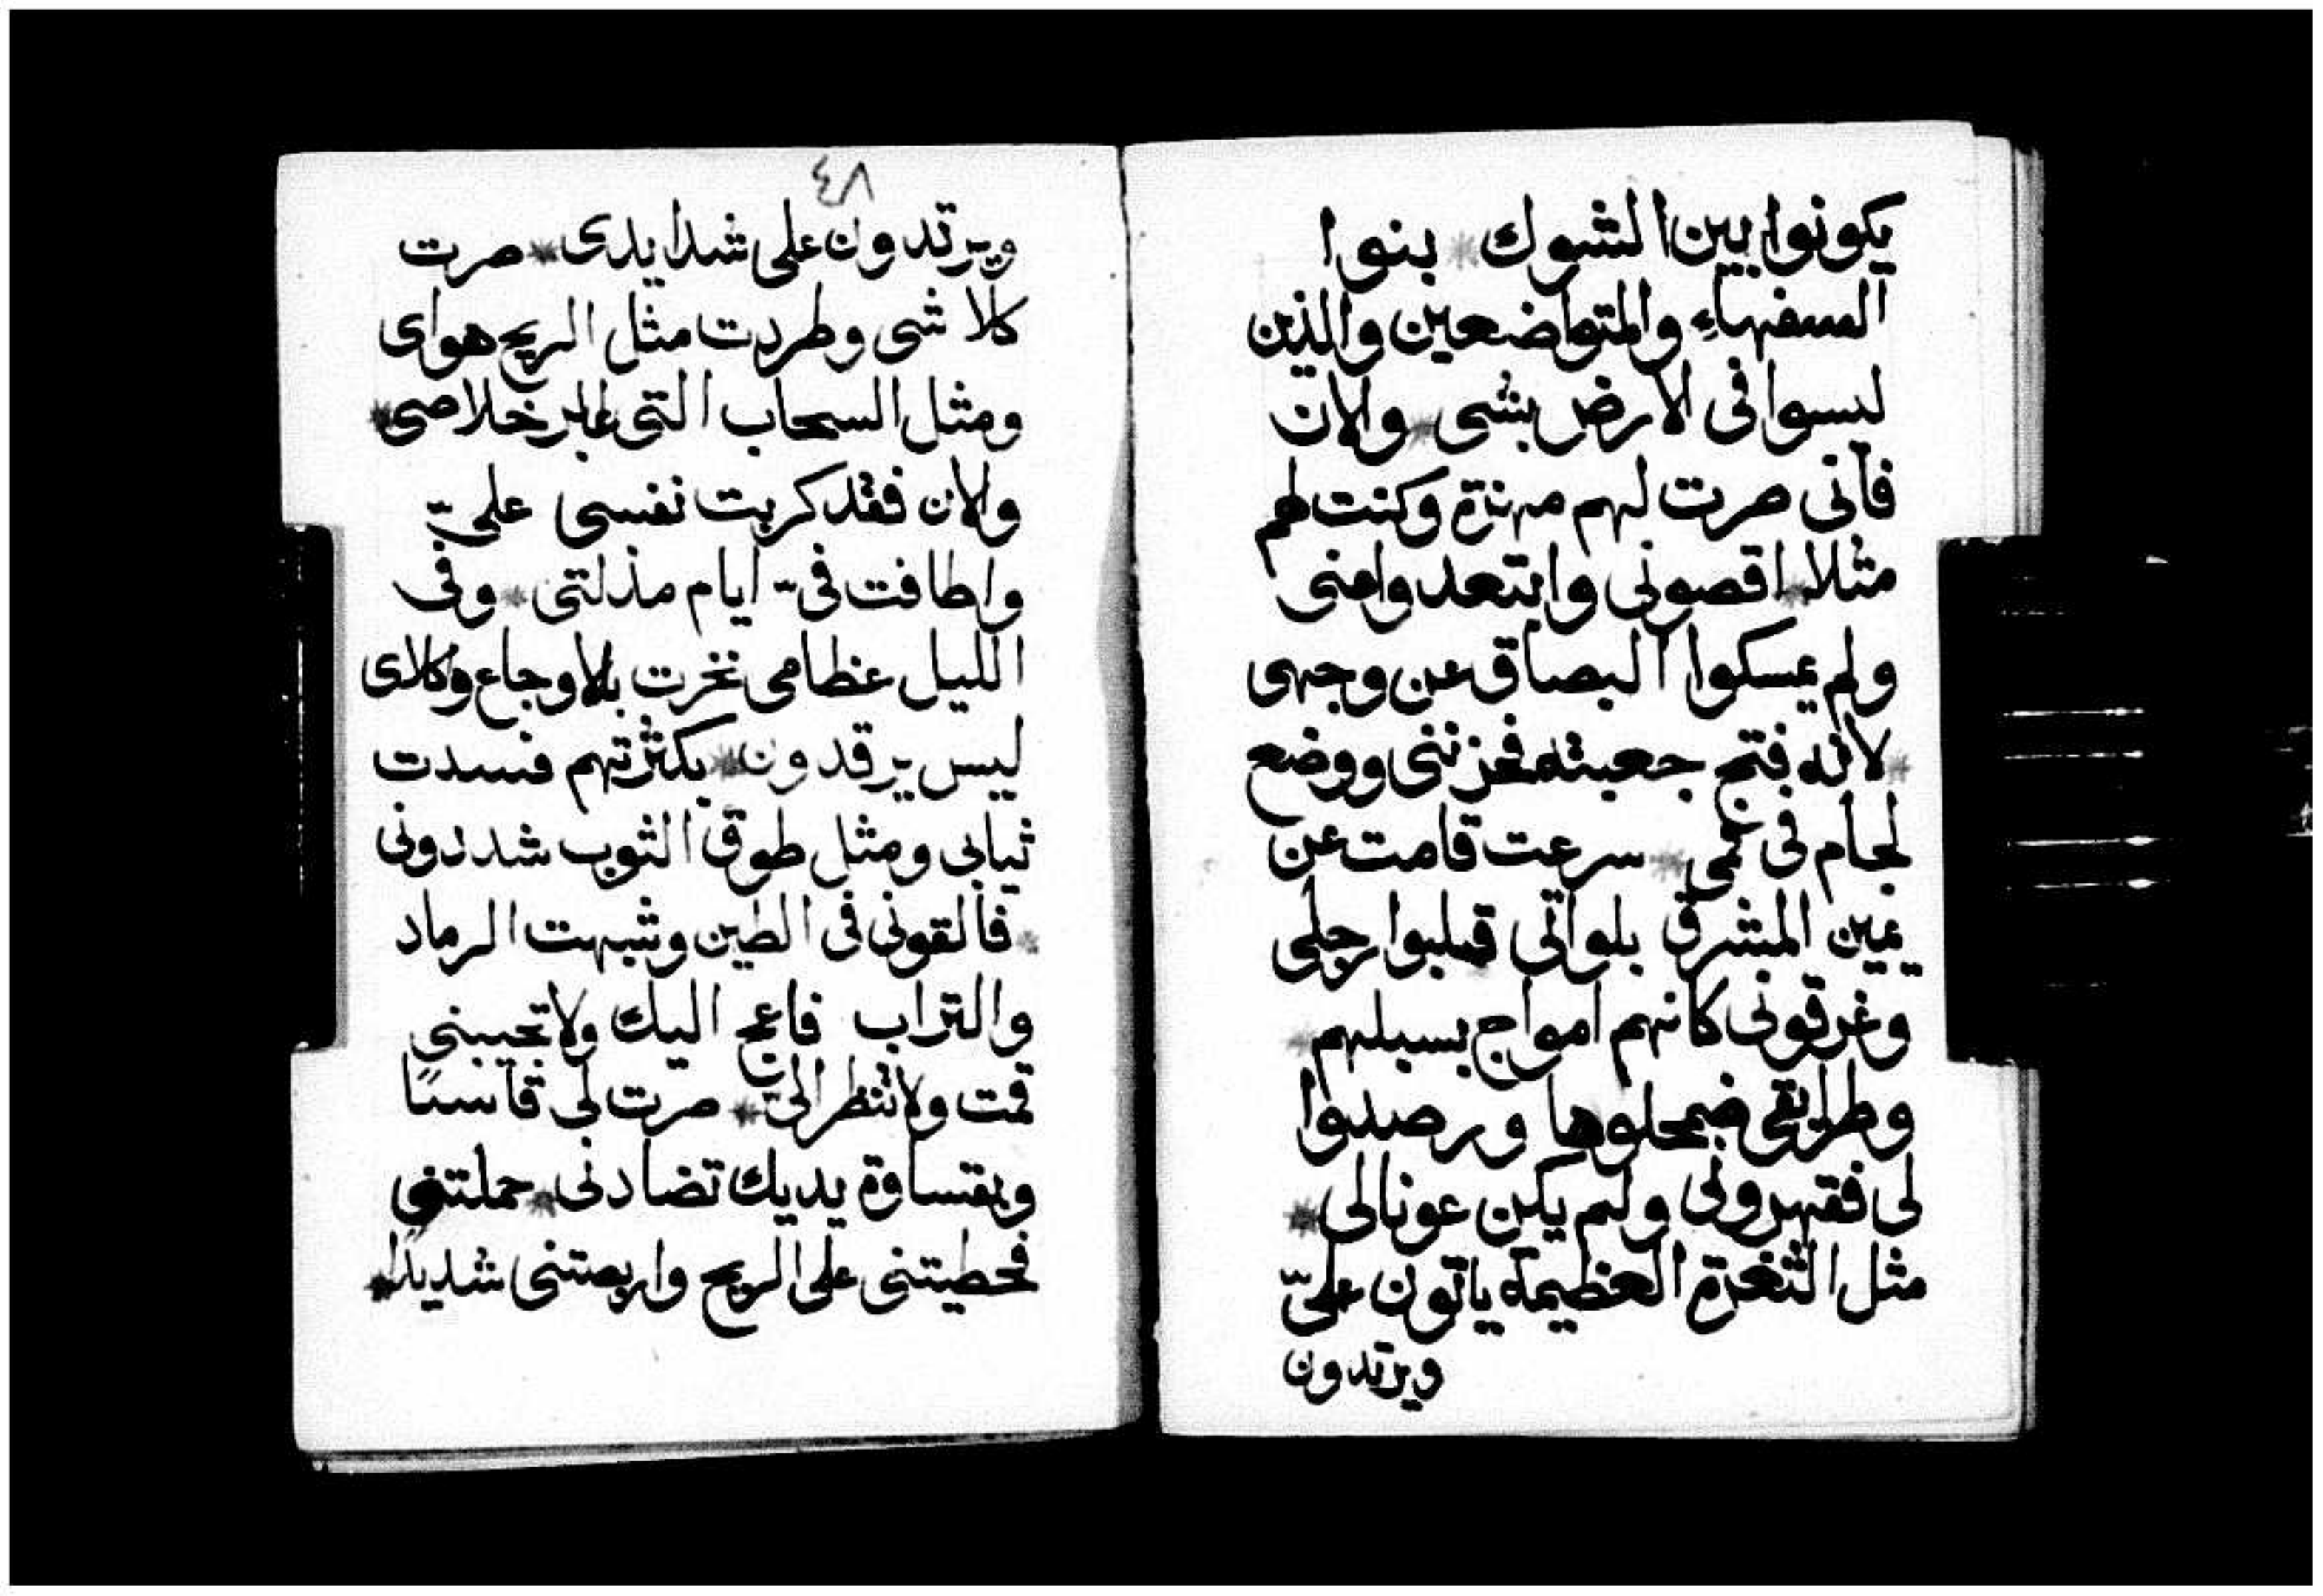 يكونوا بين الشوك * بنوا
السفهاء والمتواضعين والذين
ليسوا فى الارض بشى * والان
فانى صرت لهم مهنزة وكنت لهم
مثلا * اقصونى وابتعدوا منى
ولم يمسكوا البصاق عن وجهى
* لانه فتح جعبته فحزننى ووضع
لجام فى فمى * سرعت قامت عن
يمين المشرق بلواتى قبلبوا رجلى
وغرقونى كانهم امواج بسيلهم *
وطرايقى ضمحلوها ورصدوا
لى فقهرونى ولم يكن عونا لى *
مثل الثغرة العظيمة ياتون علىّ
ويرتدون
٤٨
ويرتدون على شدايدى * صرت
كلا شى وطردت مثل الريح هواى
ومثل السحاب التى خلاصى *
والان فقد كربت نفسى علىّ
واطافت فىّ ايام مذلتى * وفى
الليل عظامى نخرت بالاوجاع وكلاى
ليس يرقدون * بكثرتهم فسدت
ثيابى ومثل طوق الثوب شددونى
* فالقونى فى الطين وشبهت الرماد
والتراب فاعج اليك ولا تجيبنى
قمت ولا تنظر الىّ * صرت لى قاسيًا
وبقساوة يديك تضادنى * حملتنى
فحطيتنى على الريح واربصتنى شديدًا *